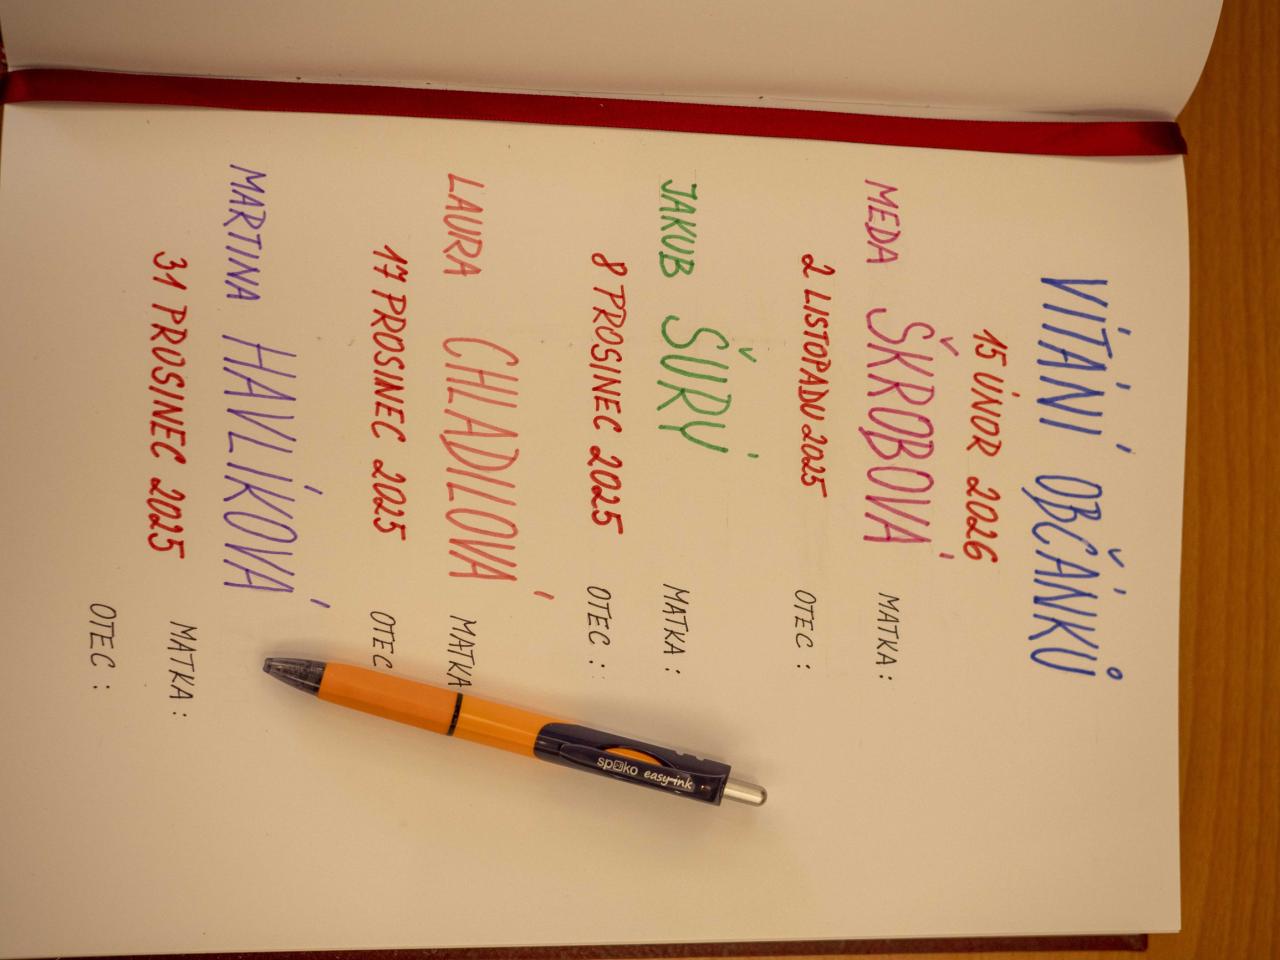 VÍTÁNÍ OBČÁNKŮ
15 ÚNOR 2026
MEDA ŠKROBOVÁ
2 LISTOPADU 2025
MATKA:
OTEC:
JAKUB ŠURÝ
8 PROSINEC 2025
MATKA:
OTEC:
LAURA CHLADILOVÁ
17 PROSINEC 2025
MATKA
OTEC
MARTINA HAVLÍKOVÁ
31 PROSINEC 2025
MATKA:
OTEC:
spoko easy ink